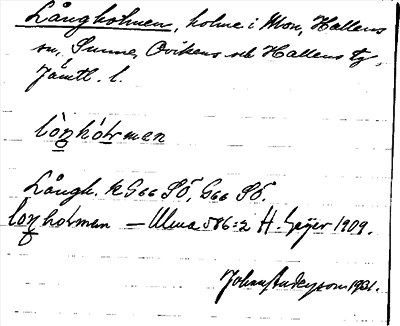 Långholmen, holme i Mon, Hallens
sn, Sunne, Ovikens och Hallens tg,
Jämtl. l.
lòŋhól̥men
Långh. k G66 SÖ, G66 SÖ.
loŋholmen – Ulma 586:2 H. Geijer 1909.
Johan Anderson 1931.